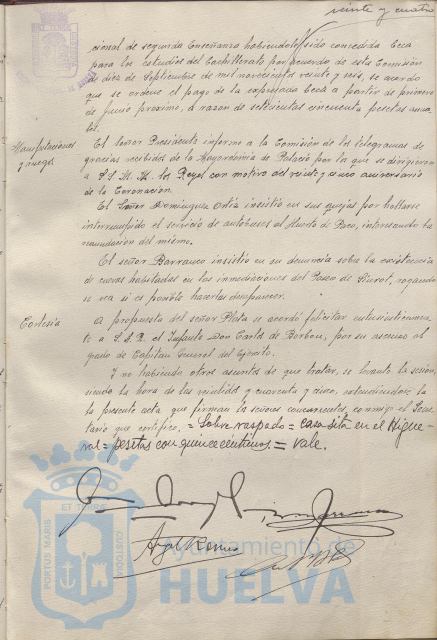 veinte y cuatro
cional de segunda Enseñanza habiendole sido concedida beca
para los estudios del Bachillerato por acuerdo de esta Comisión
de diez de Septiembre de mil novecientos veinte y seis, se acordo
que se ordene el pago de la expresada beca a partir de primero
de Junio proximo, a razon de setecientas cincuenta pesetas anua
les.
Manifestaciones
y ruegos
El señor Presidente informo a la Comisión de los telegramas de
gracias recibidos de la Mayordomia de Palacio por la que se dirigieron
a S.S. M.M. los Reyes con motivo del veinte y cinco aniversario
de la Coronación.
El Señor Dominguez Ortiz insistió en sus quejas por hallarse
interrumpido el servicio de autobuses al Huerto de Paco, interesando la
reanudación del mismo.
El señor Barranco insistió en su denuncia sobre la existencia
de cuevas habitadas en las inmediaciones del Paseo de, rogando
se vea si es posible hacerlas desaparecer.
Cortesía
A propuesta del señor Plata se acordó felicitar entusiasticamen
te a S.A.R. el Infante Don Carlos de Borbon, por su ascenso al
grado de Capitan General del Ejercito.
Y no habiendo otros asuntos de que tratar, se levanto la sesión,
siendo la hora de las veintidos y cuarenta y cinco, extendiendose
la presente acta que firman los señores concurrentes, conmigo el Secre
tario que certifico. = Sobre raspado = casa sita en el Higue
ral = pesetas con quince centimos = vale.
PORTUS MARIS
ET TERRAE
CUSTODIA
Ayuntamiento de
HUELVA